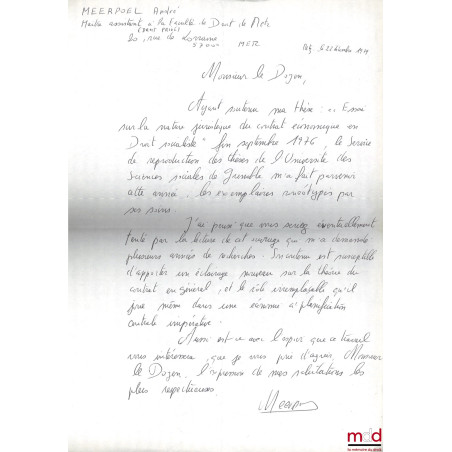 MEERPOEL André
Maître assistant à la Faculté de Droit de Metz
(DROIT PRIVÉ)
20, rue de Lorraine
57000 METZ
Metz, le 22 décembre
Monsieur le Doyen,
Ayant soutenu ma thèse : « Essai
sur la nature juridique du contrat économique en
Droit socialiste" fin septembre 1976, le Service
de reproduction des thèses de l'Université des
Sciences sociales de Grenoble m'a fait parvenir
cette année les exemplaires ronéotypés par
ses soins.
J'ai pensé que vous seriez éventuellement
tenté par la lecture de cet ouvrage qui m'a demandé
plusieurs années de recherches. Son contenu est susceptible
d'apporter un éclairage nouveau sur la théorie du
contrat en général, et le rôle irremplaçable qu'il
joue même dans une économie à planification
centrale impérative.
Aussi est-ce avec l'espoir que ce travail
vous intéressera, que je vous prie d'agréer, Monsieur
le Doyen, l'expression de mes salutations les
plus respectueuses.
Meerpoel
mdd
la mémoire du droit